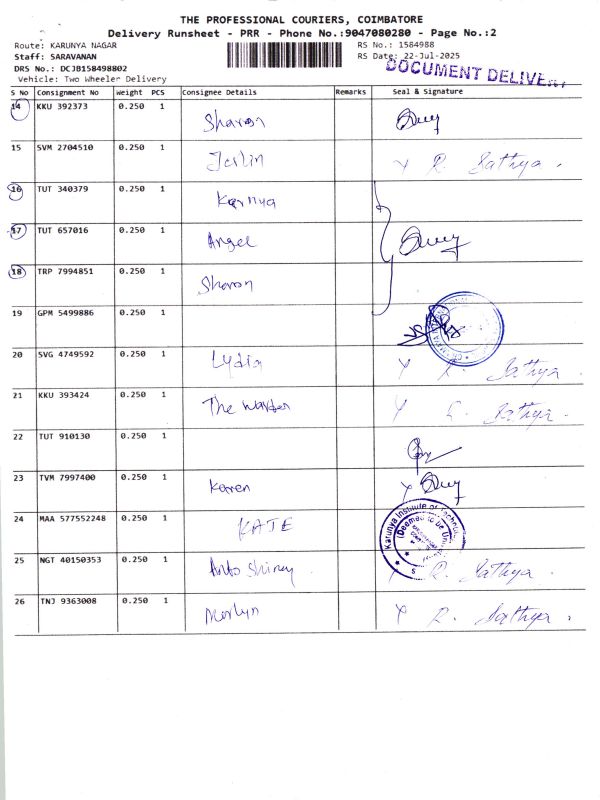 THE PROFESSIONAL COURIERS, COIMBATORE
Delivery Runsheet - PRR - Phone No.:9047080280 - Page No.:2
Route: KARUNYA NAGAR RS No.: 1584988
Staff: SARAVANAN RS Date: 22-Jul-2025
DOCUMENT DELIVE
DRS No.: DCJB158498802
Vehicle: Two Wheeler Delivery
S No Consignment No Weight PCS Consignee Details Remarks Seal & Signature
14 KKU 392373 0.250 1 Sharon
15 SVM 2704510 0.250 1 Jerlin R. Sathya.
16 TUT 340379 0.250 1 Karnya
17 TUT 657016 0.250 1 Angel
18 TRP 7994851 0.250 1 Sharon
19 GPM 5499886 0.250 1
20 SVG 4749592 0.250 1 Lydia R. Sathya.
21 KKU 393424 0.250 1 The Warden R. Sathya.
22 TUT 910130 0.250 1
23 TVM 7997400 0.250 1 Karen
24 MAA 577552248 0.250 1 KATE
Karunya Institute of Technolo
(Deemed to be Un
25 NGT 40150353 0.250 1 Anto Shiney R. Sathya.
26 TNJ 9363008 0.250 1 Merlyn R. Sathya.